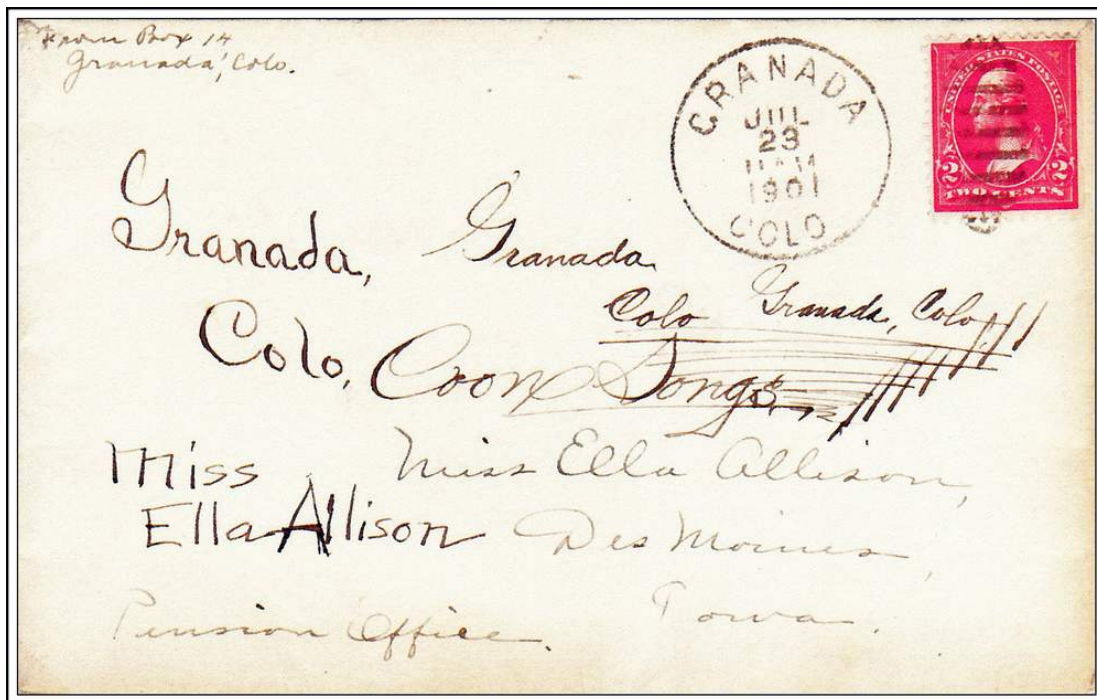 From Box 14
Granada, Colo.
GRANADA
JUL
23
1901
COLO
UNITED STATES POSTAGE
2 2
TWO CENTS
Granada,
Colo,
Granada
Colo
Granada, Colo,
Coon Songs
Miss
Ella Allison
Miss Ella Allison,
Des Moines,
Iowa.
Pension Office.